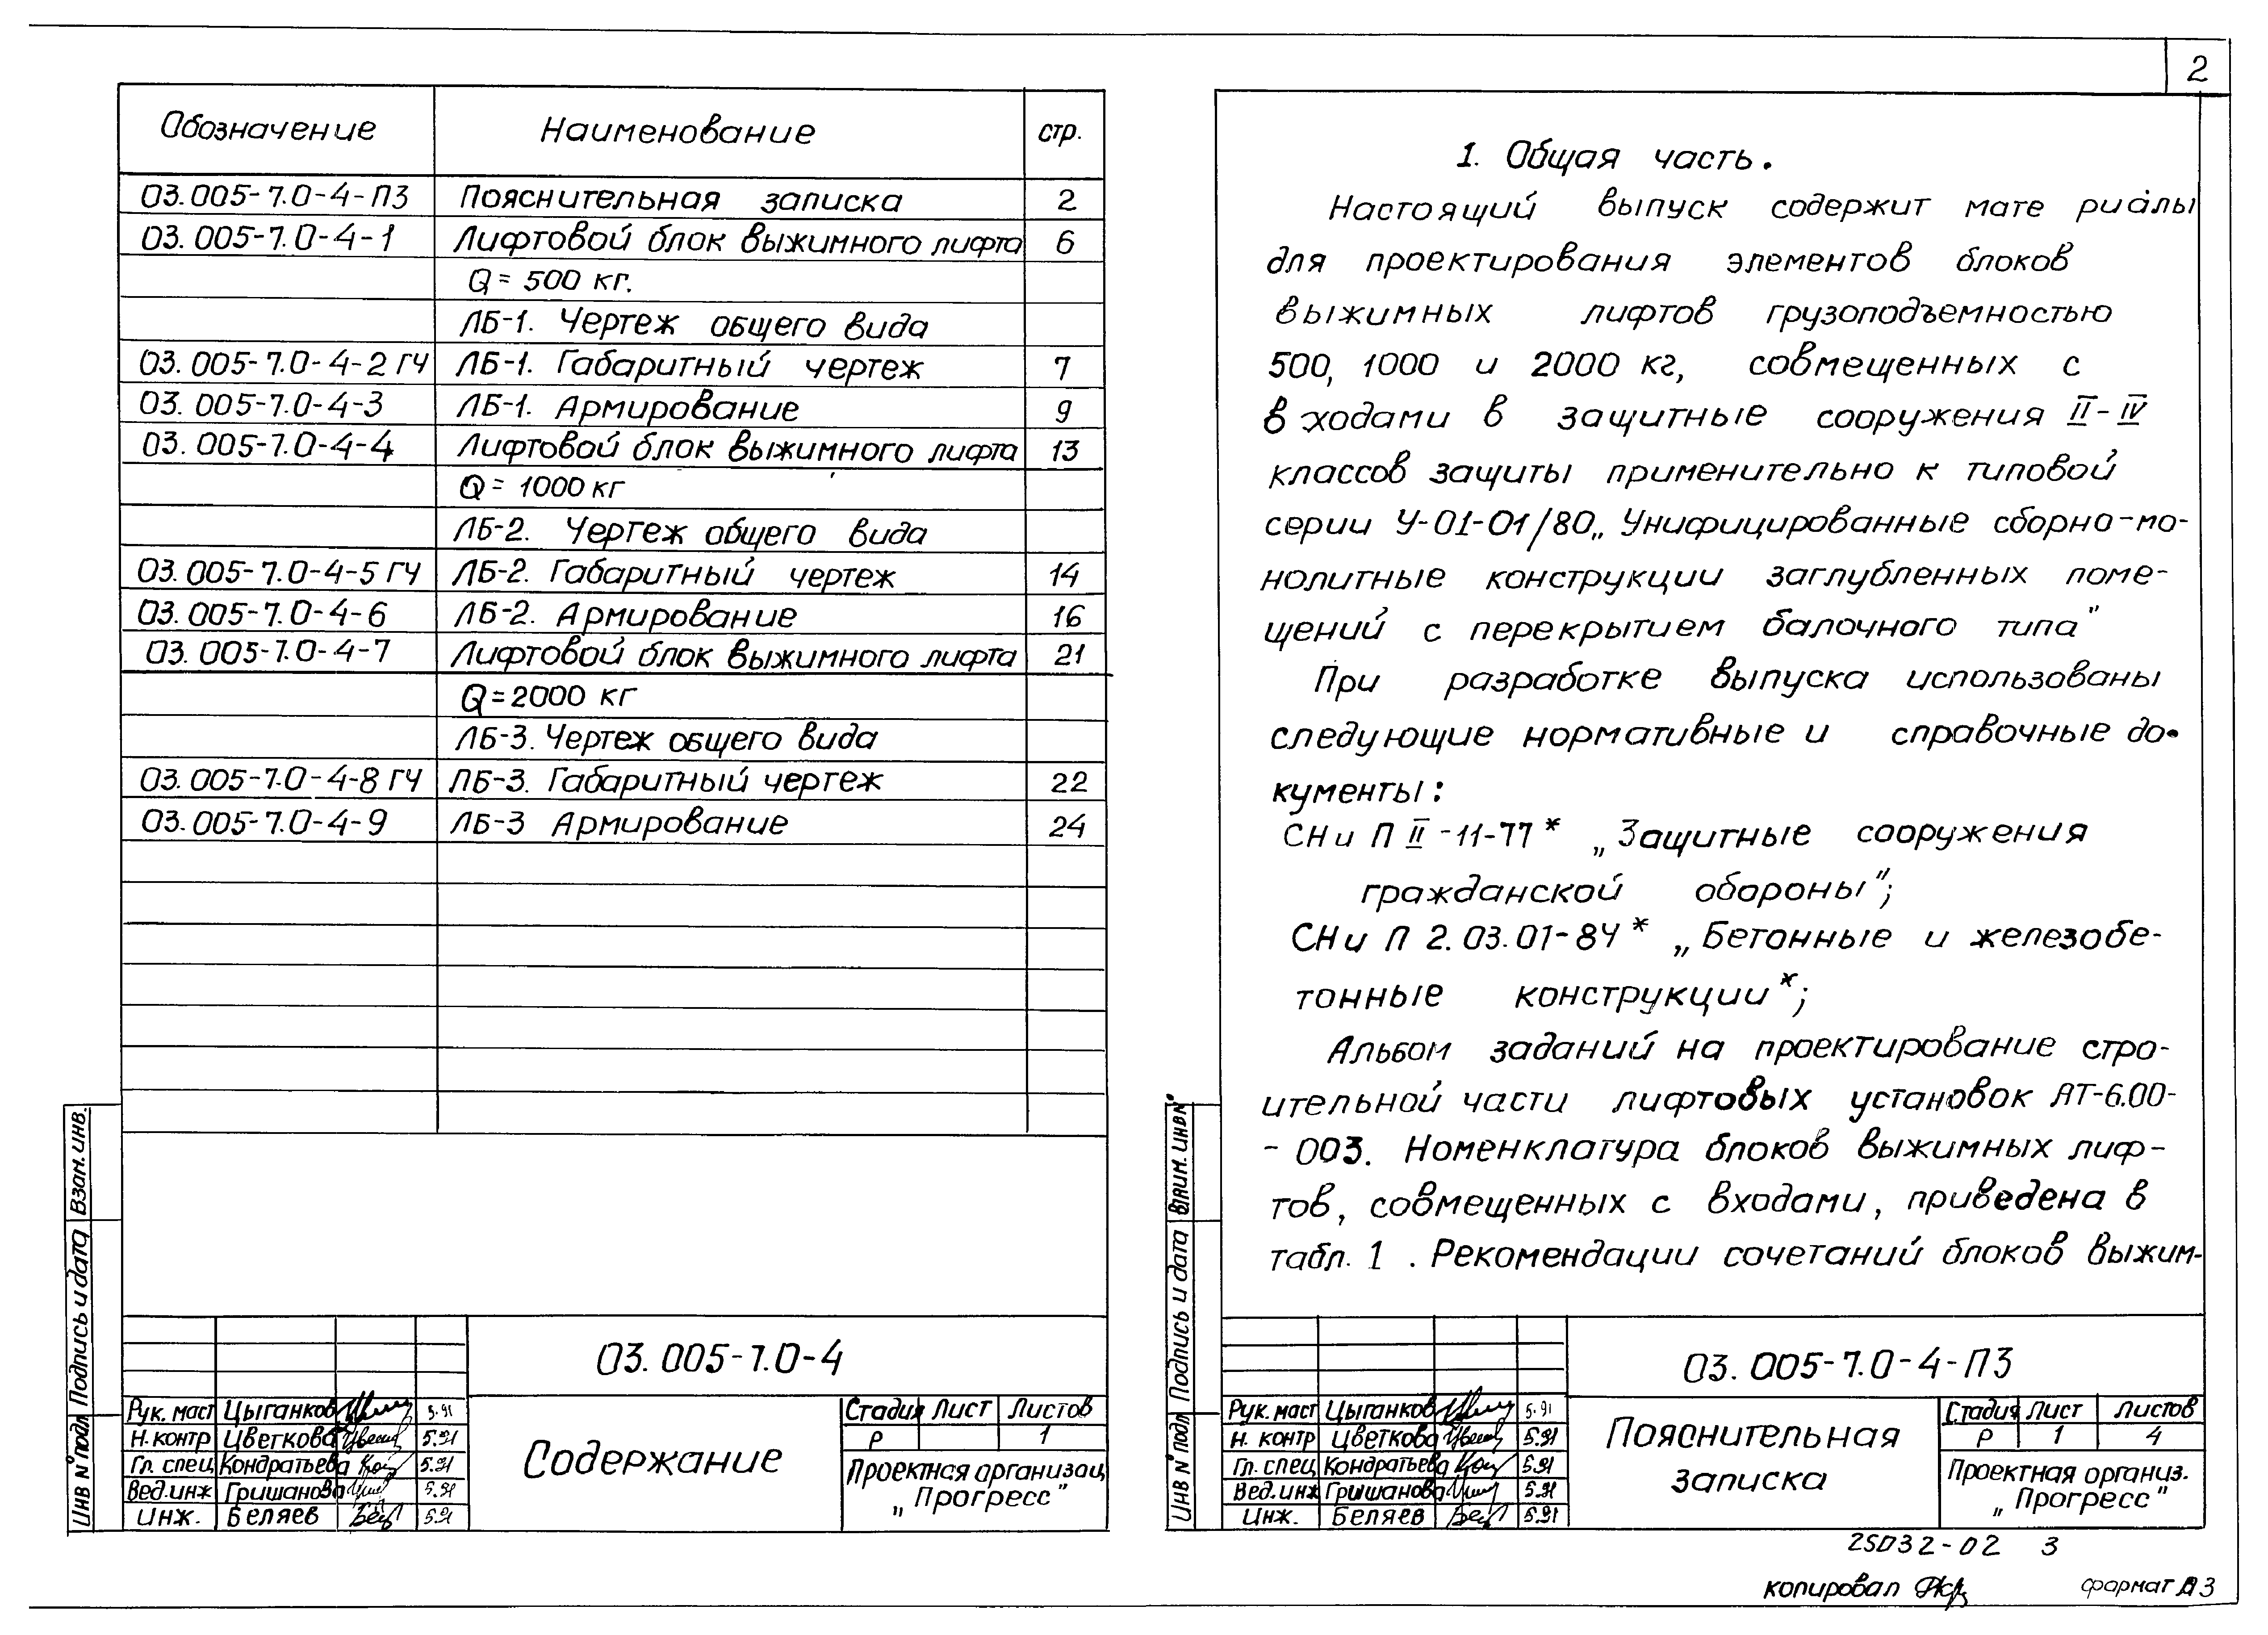 2
Обозначение Наименование стр.
03.005-7.0-4-ПЗ Пояснительная записка 2
03.005-7.0-4-1 Лифтовой блок выжимного лифта 6
Q = 500 кг.
ЛБ-1. Чертеж общего вида
03.005-7.0-4-2 ГЧ ЛБ-1. Габаритный чертеж 7
03.005-7.0-4-3 ЛБ-1. Армирование 9
03.005-7.0-4-4 Лифтовой блок выжимного лифта 13
Q = 1000 кг
ЛБ-2. Чертеж общего вида
03.005-7.0-4-5 ГЧ ЛБ-2. Габаритный чертеж 14
03.005-7.0-4-6 ЛБ-2. Армирование 16
03.005-7.0-4-7 Лифтовой блок выжимного лифта 21
Q = 2000 кг
ЛБ-3. Чертеж общего вида
03.005-7.0-4-8 ГЧ ЛБ-3. Габаритный чертеж 22
03.005-7.0-4-9 ЛБ-3 Армирование 24
Взам. инв.
Подпись и дата
Инв N° подл
03.005-7.0-4
Рук. маст Цыганков 5.91
Н. контр Цветкова 5.91
Гл. спец Кондратьева 5.91
Вед. инж Гришанова 5.91
Инж. Беляев 5.91
Содержание
Стадия Лист Листов
Р 1
Проектная организац
„Прогресс"
1. Общая часть.
Настоящий выпуск содержит материалы
для проектирования элементов блоков
выжимных лифтов грузоподъемностью
500, 1000 и 2000 кг, совмещенных с
входами в защитные сооружения II-IV
классов защиты применительно к типовой
серии У-01-01/80 „Унифицированные сборно-мо-
нолитные конструкции заглубленных поме-
щений с перекрытием балочного типа"
При разработке выпуска использованы
следующие нормативные и справочные до-
кументы:
СНиП II-11-77* „Защитные сооружения
гражданской обороны";
СНиП 2.03.01-84* „Бетонные и железобе-
тонные конструкции*;
Альбом заданий на проектирование стро-
ительной части лифтовых установок АТ-6.00-
-003. Номенклатура блоков выжимных лиф-
тов, совмещенных с входами, приведена в
табл. 1. Рекомендации сочетаний блоков выжим-
Взаим. инв N°
Подпись и дата
Инв N° подл
03.005-7.0-4-ПЗ
Рук. маст Цыганков 5.91
Н. контр Цветкова 5.91
Гл. спец Кондратьева 5.91
Вед. инж Гришанова 5.91
Инж. Беляев 5.91
Пояснительная
записка
Стадия Лист Листов
Р 1 4
Проектная организ.
„Прогресс"
25032-02 3
копировал формат А3